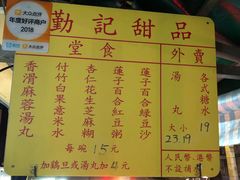 大众点评
年度好评商户
2018
大众点评
勤記甜品
堂食
外賣
香滑麻蓉湯丸
付竹白果薏米水
杏仁花生芝麻糊
蓮子百合紅豆沙
蓮子百合綠豆沙
每碗15元
加鷄旦或湯丸加4元
湯丸
各式糖水
大小
19
23.19
人民幣、港幣
不設補